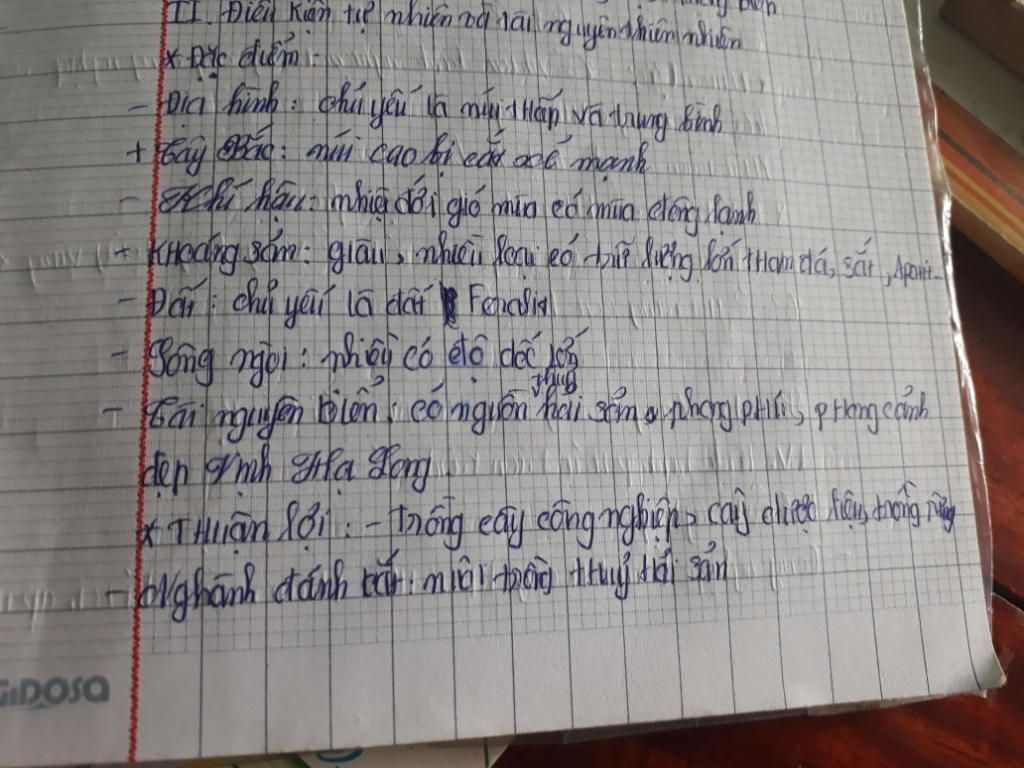 II. Điều kiện tự nhiên và tài nguyên thiên nhiên
* Đặc điểm:
- Địa hình: chủ yếu là núi thấp và trung bình
+ Tây Bắc: núi cao bị cắt xẻ mạnh
- Khí hậu: nhiệt đới gió mùa có mùa đông lạnh
+ Khoáng sản: giàu, nhiều loại có trữ lượng lớn than đá, sắt, Apatit...
- Đất: chủ yếu là đất Feralit
- Sông ngòi: nhiều có độ dốc lớn
- Tài nguyên biển: có nguồn hải sản phong phú, phong cảnh
đẹp Vịnh Hạ Long
* Thuận lợi: - trồng cây công nghiệp, cây dược liệu, trồng rừng
- Nghành đánh bắt nuôi trồng thuỷ hải sản
GIDOSA